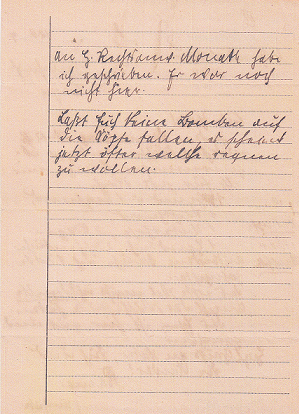 an H. Rechtsanw. Monath habe
ich geschrieben. Er war noch
nicht hier.
Laßt Euch keine Bomben auf
die Köpfe fallen, es scheint
jetzt öfter welche regnen
zu wollen.